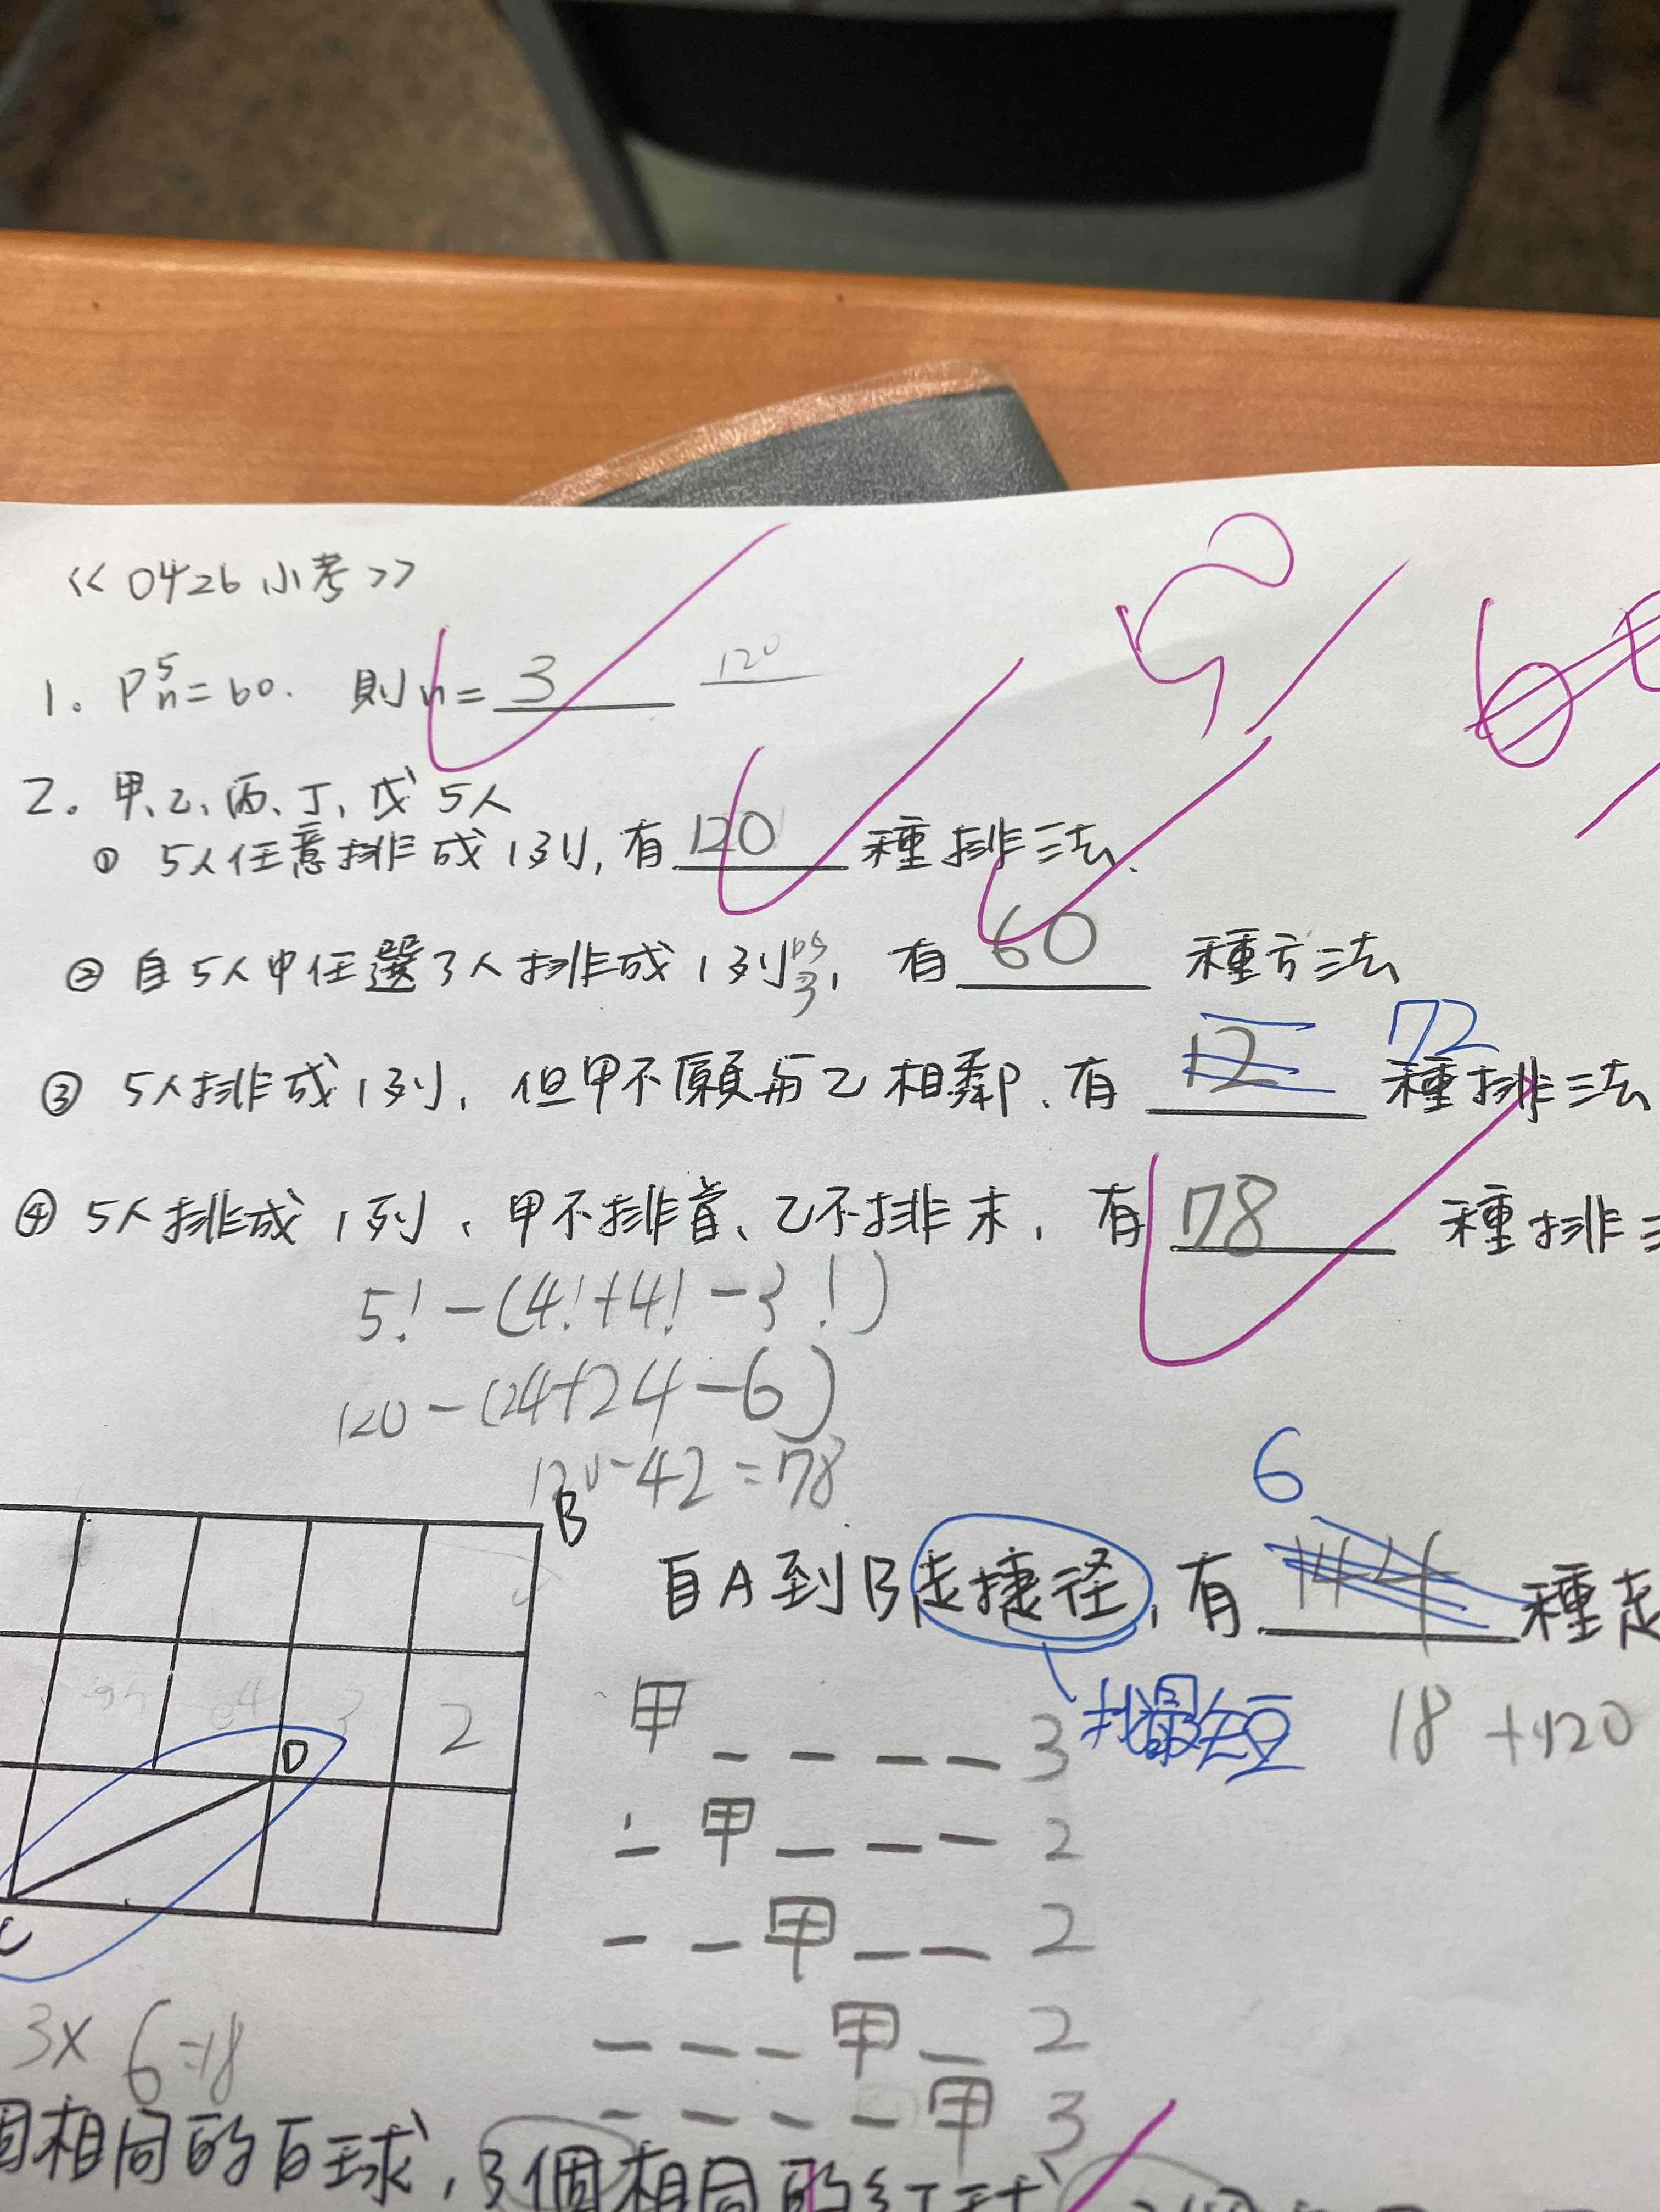 << 0426 小考 >>
1. P⁵ₙ = 60. 則 n = 3 120
2. 甲、乙、丙、丁、戊 5人
① 5人任意排成1列, 有 120 種排法
② 自5人中任選3人排成1列, P⁵₃ 有 60 種方法
③ 5人排成1列, 但甲不願與乙相鄰, 有 12 72 種排法
④ 5人排成1列, 甲不排首、乙不排末, 有 78 種排
5! - (4! + 4! - 3!)
120 - (24+24-6)
120-42 = 78
B
6
自A到B走捷徑, 有 144 種走
找最短
18 + 120
D
2
C
甲 _ _ _ _ 3
_ 甲 _ _ _ 2
_ _ 甲 _ _ 2
_ _ _ 甲 _ 2
_ _ _ _ 甲 3
3 x 6 = 18
個相同的白球, 3個相同的紅球